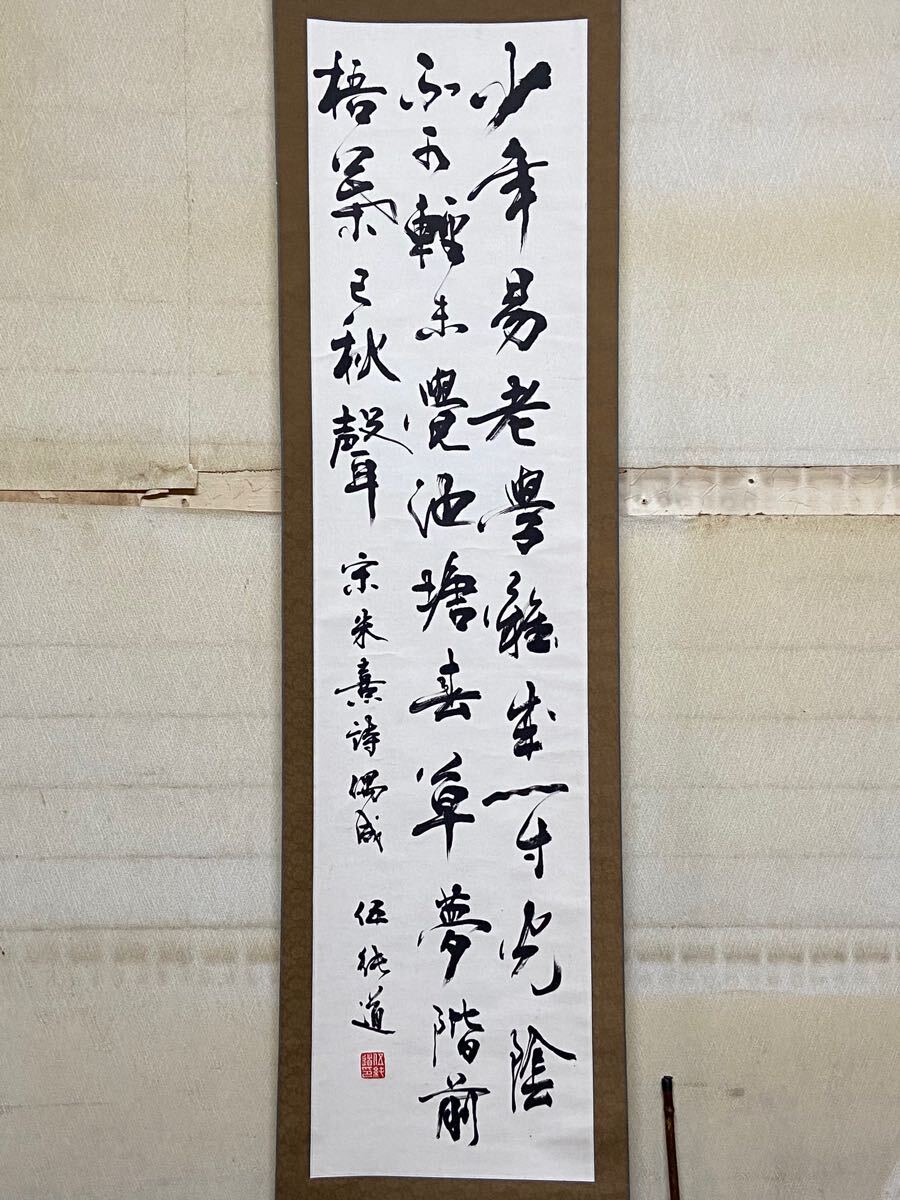 少年易老學難成一寸光陰
不可輕未覺池塘春草夢階前
梧葉已秋聲 宋朱熹詩偶成 伍純道